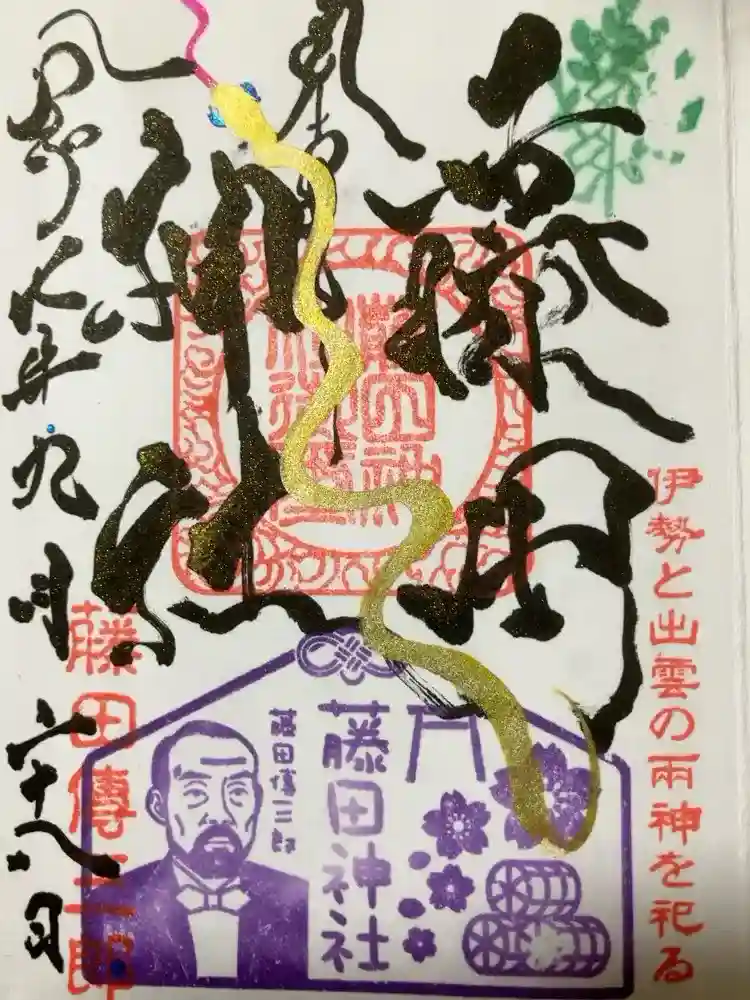 奉拝
藤田
神社
令和七年九月二十八日
伊勢と出雲の両神を祀る
藤田傳三郎
藤田神社
藤田傳三郎